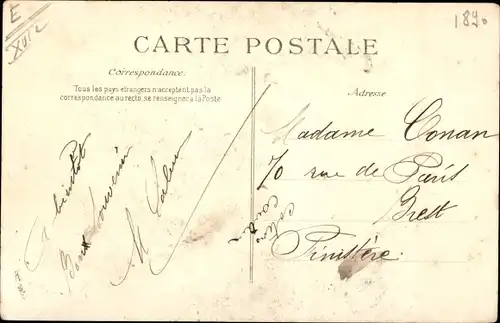 E
XVIe
1890
CARTE POSTALE
Correspondance.
Tous les pays étrangers n'acceptent pas la
correspondance au recto, se renseigner à la Poste
Adresse
A bientôt
Bons Souvenir
M
Madame Conan
70 rue de Paris
Brest
Finistère.